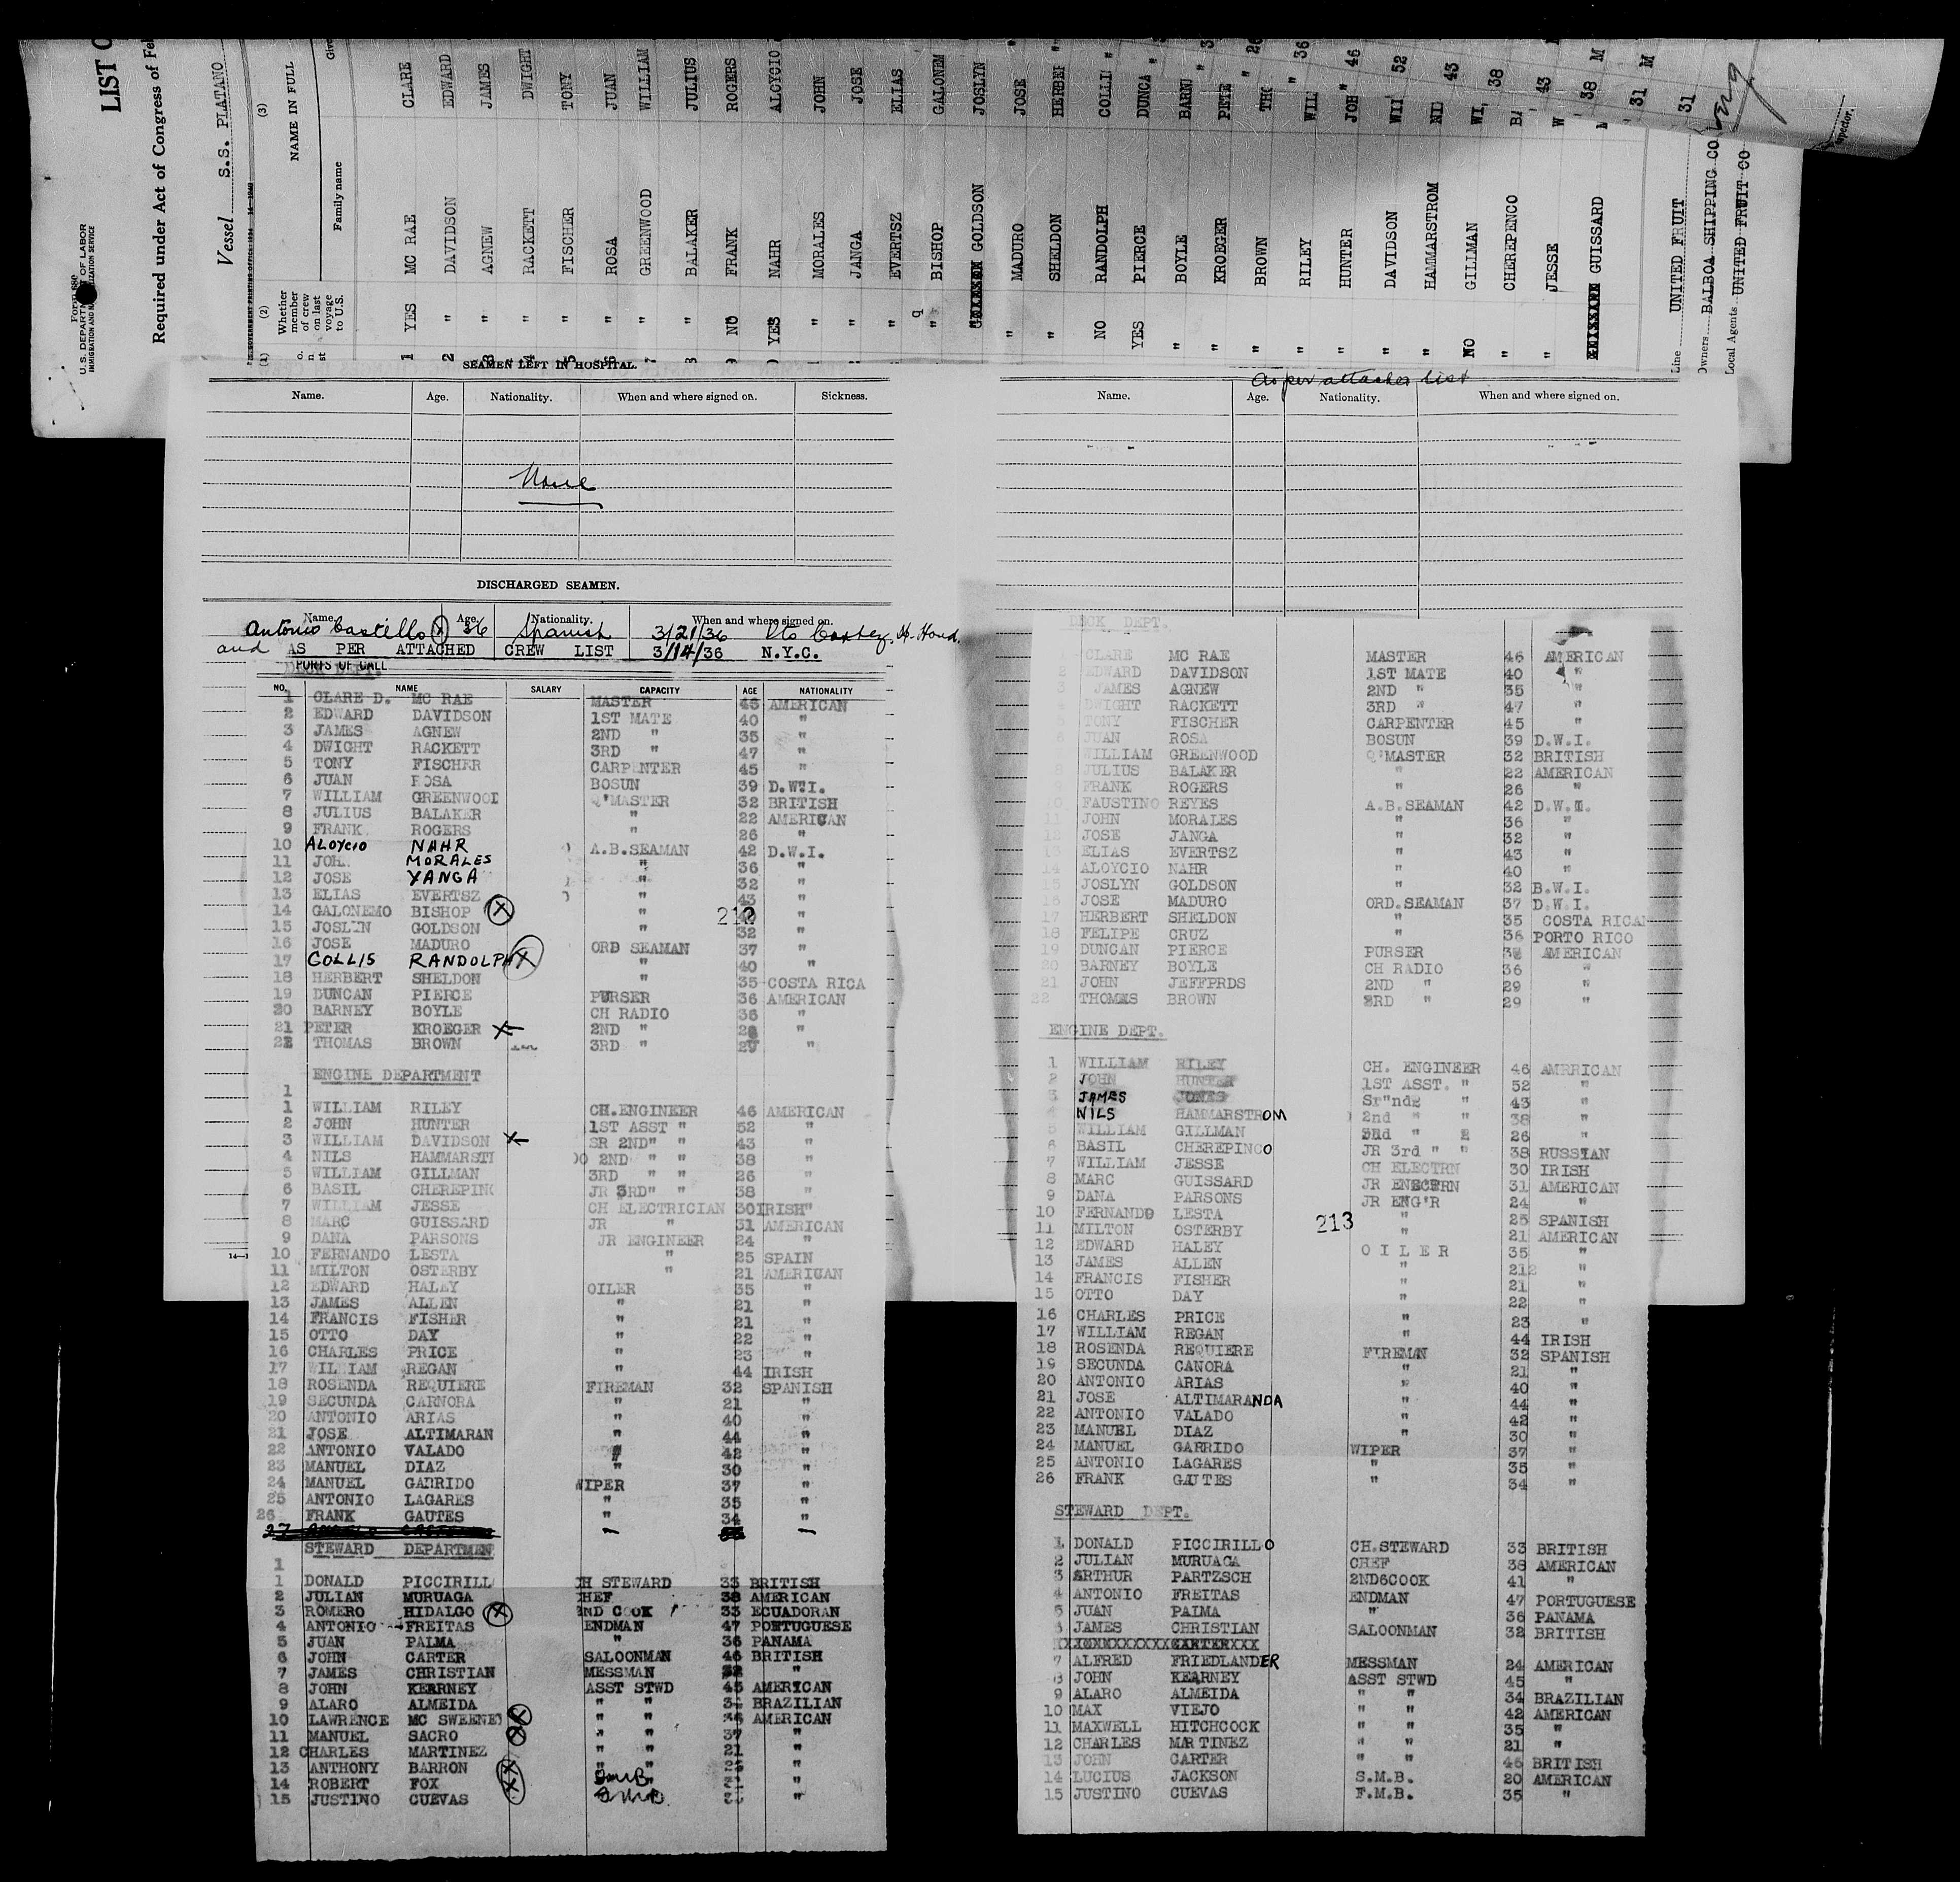 LIST O
Required under Act of Congress of Fe
Form 689
U.S. DEPARTMENT OF LABOR
IMMIGRATION AND NATURALIZATION SERVICE
Vessel S.S. PLATANO
(1) (2) (3)
Whether member of crew on last voyage to U.S.
NAME IN FULL
Family name Give
1 YES MC RAE CLARE
2 " DAVIDSON EDWARD
3 " AGNEW JAMES
4 " RACKETT DWIGHT
5 " FISCHER TONY
6 " ROSA JUAN
7 " GREENWOOD WILLIAM
8 " BALAKER JULIUS
9 NO FRANK ROGERS
YES NAHR ALOYCIO
" MORALES JOHN
" JANGA JOSE
" EVERTSZ ELIAS
" BISHOP GALONEM
" GOLDSON JOSLYN
" MADURO JOSE
" SHELDON HERBER
NO RANDOLPH COLLI "
YES PIERCE DUNCA "
" BOYLE BARN
" KROEGER PETE
" BROWN THO " 26
" RILEY WILL " 36
" HUNTER JOH " 46
" DAVIDSON WIL 52
" HAMMARSTROM NI 43
NO GILLMAN WI 38
" CHEREPENCO BA 43
" JESSE W 38 M
GUISSARD 31 M
31
Line UNITED FRUIT
Owners BALBOA SHIPPING CO
Local Agents UNITED FRUIT CO
SEAMEN LEFT IN HOSPITAL.
Name. Age. Nationality. When and where signed on. Sickness.
None
DISCHARGED SEAMEN.
Name. Age. Nationality. When and where signed on.
Antonio Castillo X 36 Spanish 3/21/36 Pto Cortez, H. Hond.
and AS PER ATTACHED CREW LIST 3/14/36 N.Y.C.
PORTS OF CALL
DECK DEPT.
NO. NAME SALARY CAPACITY AGE NATIONALITY
1 CLARE D. MC RAE MASTER 46 AMERICAN
2 EDWARD DAVIDSON 1ST MATE 40 "
3 JAMES AGNEW 2ND " 35 "
4 DWIGHT RACKETT 3RD " 47 "
5 TONY FISCHER CARPENTER 45 "
6 JUAN ROSA BOSUN 39 D.W.I.
7 WILLIAM GREENWOOD Q'MASTER 32 BRITISH
8 JULIUS BALAKER " 22 AMERICAN
9 FRANK ROGERS " 26 "
10 ALOYCIO NAHR A.B.SEAMAN 42 D.W.I.
11 JOH. MORALES " 36 "
12 JOSE YANGA " 32 "
13 ELIAS EVERTSZ " 43 "
14 GALONEMO BISHOP X " "
212
15 JOSLYN GOLDSON " 32 "
16 JOSE MADURO ORD SEAMAN 37 "
17 COLLIS RANDOLPH X " 40 "
18 HERBERT SHELDON " 35 COSTA RICA
19 DUNCAN PIERCE PURSER 36 AMERICAN
20 BARNEY BOYLE CH RADIO 36 "
21 PETER KROEGER X 2ND " "
22 THOMAS BROWN 3RD " 29 "
ENGINE DEPARTMENT
1
1 WILLIAM RILEY CH.ENGINEER 46 AMERICAN
2 JOHN HUNTER 1ST ASST " 52 "
3 WILLIAM DAVIDSON X SR 2ND" " 43 "
4 NILS HAMMARSTI 2ND " " 38 "
5 WILLIAM GILLMAN 3RD " " 26 "
6 BASIL CHEREPINC JR 3RD" " 38 "
7 WILLIAM JESSE CH ELECTRICIAN 30 IRISH"
8 MARC GUISSARD JR " 31 AMERICAN
9 DANA PARSONS JR ENGINEER 24 "
10 FERNANDO LESTA " 25 SPAIN
11 MILTON OSTERBY " 21 AMERICAN
12 EDWARD HALEY OILER 35 "
13 JAMES ALLEN " 21 "
14 FRANCIS FISHER " 21 "
15 OTTO DAY " 22 "
16 CHARLES PRICE " 23 "
17 WILLIAM REGAN " 44 IRISH
18 ROSENDA REQUIERE FIREMAN 32 SPANISH
19 SECUNDA CARNORA " 21 "
20 ANTONIO ARIAS " 40 "
21 JOSE ALTIMARAN " 44 "
22 ANTONIO VALADO " 42 "
23 MANUEL DIAZ " 30 "
24 MANUEL GARRIDO WIPER 37 "
25 ANTONIO LAGARES " 35 "
26 FRANK GAUTES " 34 "
27
STEWARD DEPARTMEN
1
1 DONALD PICCIRILL CH STEWARD 33 BRITISH
2 JULIAN MURUAGA CHEF 38 AMERICAN
3 ROMERO HIDALGO X 2ND COOK 33 ECUADORAN
4 ANTONIO FREITAS ENDMAN 47 PORTUGUESE
5 JUAN PALMA " 36 PANAMA
6 JOHN CARTER SALOONMAN 46 BRITISH
7 JAMES CHRISTIAN MESSMAN 32 "
8 JOHN KEARNEY ASST STWD 45 AMERICAN
9 ALARO ALMEIDA " " 34 BRAZILIAN
10 LAWRENCE MC SWEENEY X " " AMERICAN
11 MANUEL SACRO X " " 37 "
12 CHARLES MARTINEZ " " 21 "
13 ANTHONY BARRON X " " "
14 ROBERT FOX X "
15 JUSTINO CUEVAS "
As per attached list
Name. Age. Nationality. When and where signed on.
DECK DEPT.
CLARE MC RAE MASTER 46 AMERICAN
2 EDWARD DAVIDSON 1ST MATE 40 "
3 JAMES AGNEW 2ND " 35 "
DWIGHT RACKETT 3RD " 47 "
TONY FISCHER CARPENTER 45 "
6 JUAN ROSA BOSUN 39 D.W.I.
WILLIAM GREENWOOD Q'MASTER 32 BRITISH
8 JULIUS BALAKER " 22 AMERICAN
FRANK ROGERS " 26 "
10 FAUSTINO REYES A.B.SEAMAN 42 D.W.I.
11 JOHN MORALES " 36 "
12 JOSE JANGA " 32 "
13 ELIAS EVERTSZ " 43 "
14 ALOYCIO NAHR " 40 "
15 JOSLYN GOLDSON " 32 B.W.I.
16 JOSE MADURO ORD.SEAMAN 37 D.W.I.
17 HERBERT SHELDON " 35 COSTA RICAN
18 FELIPE CRUZ " 36 PORTO RICO
19 DUNCAN PIERCE PURSER AMERICAN
20 BARNEY BOYLE CH RADIO 36 "
21 JOHN JEFFPRDS 2ND " 29 "
22 THOMAS BROWN 3RD " 29 "
ENGINE DEPT.
1 WILLIAM RILEY CH. ENGINEER 46 AMERICAN
2 JOHN HUNTER 1ST ASST. " 52 "
3 JAMES JONES Sr"nd " 43 "
NILS HAMMARSTROM 2nd " " 38 "
5 WILLIAM GILLMAN " 26 "
6 BASIL CHEREPINCO JR 3rd " " 38 RUSSIAN
7 WILLIAM JESSE CH ELECTRN 30 IRISH
8 MARC GUISSARD JR 31 AMERICAN
9 DANA PARSONS JR ENG'R 24 "
10 FERNANDO LESTA " 25 SPANISH
213
11 MILTON OSTERBY " 21 AMERICAN
12 EDWARD HALEY O I L E R 35 "
13 JAMES ALLEN " 212 "
14 FRANCIS FISHER " 21 "
15 OTTO DAY " 22 "
16 CHARLES PRICE " 23 "
17 WILLIAM REGAN " 44 IRISH
18 ROSENDA REQUIERE FIREMAN 32 SPANISH
19 SECUNDA CANORA " 21 "
20 ANTONIO ARIAS " 40 "
21 JOSE ALTIMARANDA " 44 "
22 ANTONIO VALADO " 42 "
23 MANUEL DIAZ " 30 "
24 MANUEL GARRIDO WIPER 37 "
25 ANTONIO LAGARES " 35 "
26 FRANK GAUTES " 34 "
STEWARD DEPT.
1 DONALD PICCIRILLO CH.STEWARD 33 BRITISH
2 JULIAN MURUAGA CHEF 38 AMERICAN
3 ARTHUR PARTZSCH 2ND6COOK 41 "
4 ANTONIO FREITAS ENDMAN 47 PORTUGUESE
5 JUAN PALMA " 36 PANAMA
6 JAMES CHRISTIAN SALOONMAN 32 BRITISH
7 ALFRED FRIEDLANDER MESSMAN 24 AMERICAN
8 JOHN KEARNEY ASST STWD 45 "
9 ALARO ALMEIDA " " 34 BRAZILIAN
10 MAX VIEJO " " 42 AMERICAN
11 MAXWELL HITCHCOCK " " 35 "
12 CHARLES MARTINEZ " " 21 "
13 JOHN CARTER " " 46 BRITISH
14 LUCIUS JACKSON S.M.B. 20 AMERICAN
15 JUSTINO CUEVAS F.M.B. 35 "